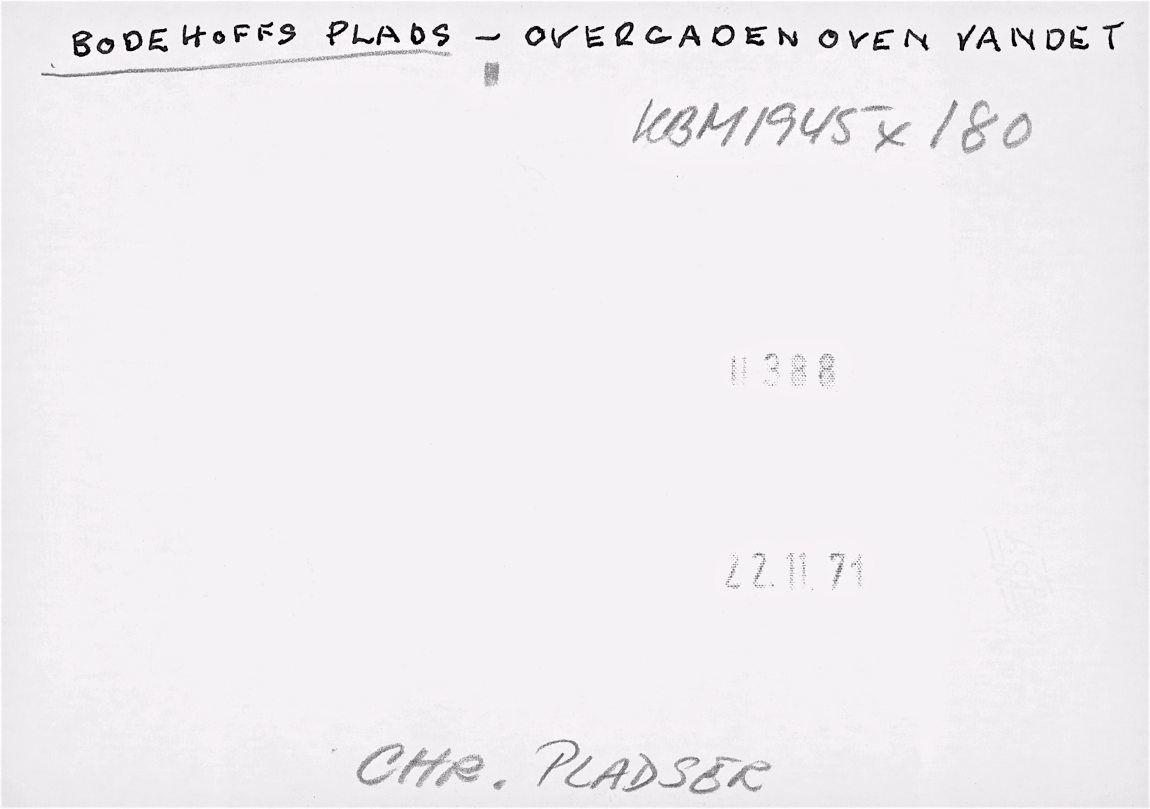 BODEHOFFS PLADS – OVERGADEN OVEN VANDET
KBM1945 x 180
11388
22.11.71
CHR. PLADSER